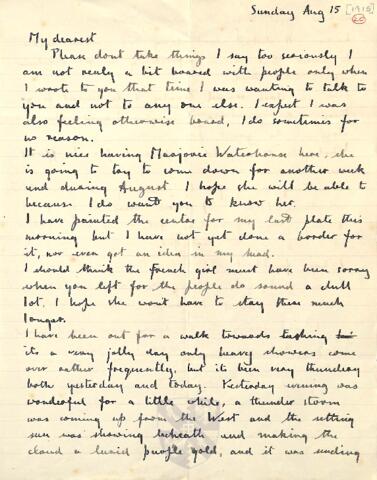 Sunday Aug 15 [1915]
My dearest
Please dont take things I say too seriously I
am not realy a bit boared with people only when
I wrote to you that time I was wanting to talk to
you and not to any one else. I expect I was
also feeling otherwise boared, I do sometimes for
no reason.
It is nice having Marjorie Waterhouse here, she
is going to try to come down for another week
end during August. I hope she will be able to
because I do want you to know her.
I have painted the centre for my last plate this
morning but I have not yet done a border for
it, nor even got an idea in my head.
I should think the French girl must have been sorry
when you left for the people do sound a dull
lot. I hope she wont have to stay there much
longer.
I have been out for a walk towards
its a very jolly day only heavy showers come
over rather frequently, but its been very thundery
both yesterday and today. Yesterday evening was
wonderful for a little while, a thunder storm
was coming up from the West and the setting
sun was showing beneath and making the
cloud a lurid purple gold, and it was sending